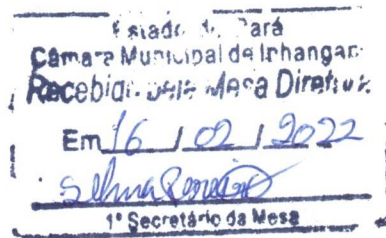 Estado do Pará
Câmara Municipal de Inhangap
Recebido pela Mesa Diretiva
Em 16 / 02 / 2022
Selma
1º Secretário da Mesa